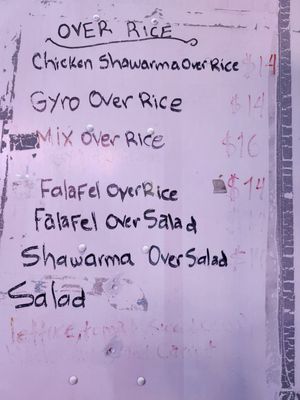 OVER RICE
Chicken Shawarma Over Rice $14
Gyro Over Rice $14
Mix Over Rice $16
Falafel Over Rice $14
Falafel Over Salad
Shawarma Over Salad
Salad
lettuce,